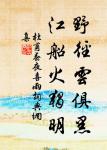 野徑雲俱黑
江船火獨明
杜甫春夜喜雨
集